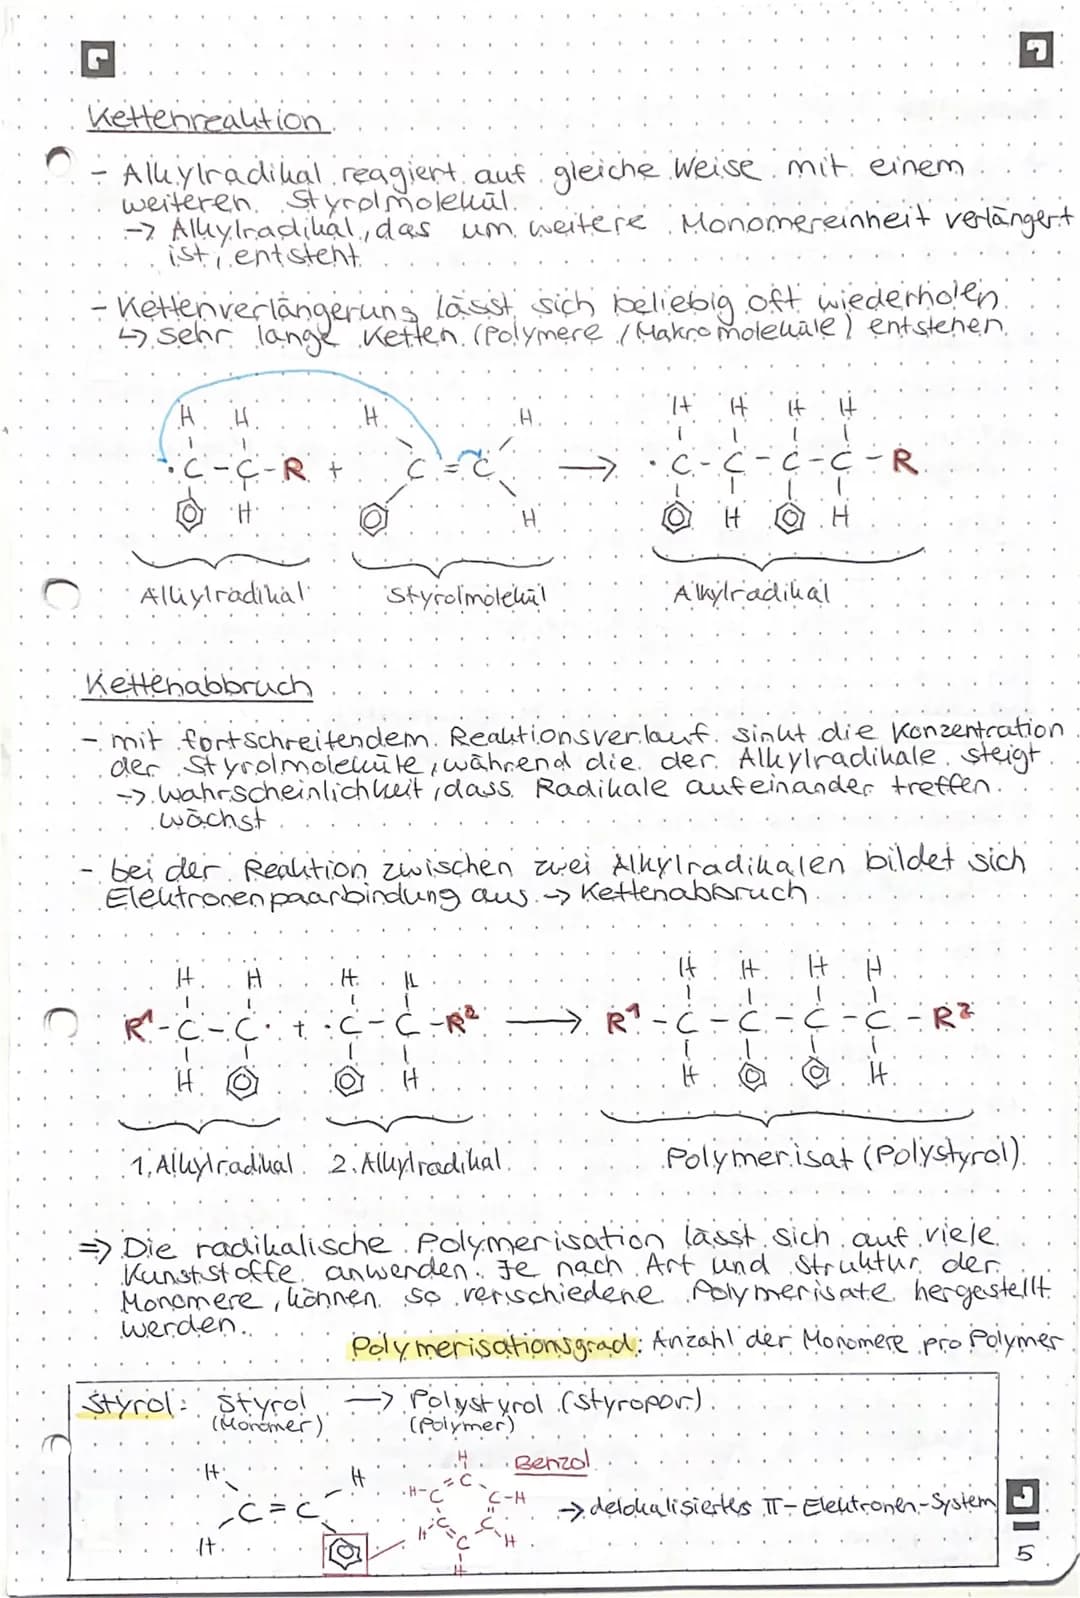 Kettenreaktion
- Alkylradikal reagiert auf gleiche Weise mit einem
weiteren Styrolmolekül.
-> Alkylradikal, das um weitere Monomereinheit verlängert
ist, entsteht
- Kettenverlängerung lässt sich beliebig oft wiederholen.
↳ sehr lange Ketten (Polymere / Makromoleküle) entstehen.
H H H H H H H H
·C-C-R + C=C → ·C-C-C-C-R
H H H H
Alkylradikal Styrolmolekül Alkylradikal
Kettenabbruch
- mit fortschreitendem Reaktionsverlauf sinkt die Konzentration
der Styrolmoleküle, während die der Alkylradikale steigt.
-> Wahrscheinlichkeit, dass Radikale aufeinander treffen
wächst
- bei der Reaktion zwischen zwei Alkylradikalen bildet sich
Elektronenpaarbindung aus -> Kettenabbruch
H H H H H H H H
R¹-C-C· + ·C-C-R² → R¹-C-C-C-C-R²
H H H H
1. Alkylradikal 2. Alkylradikal Polymerisat (Polystyrol)
=> Die radikalische Polymerisation lässt sich auf viele
Kunststoffe anwenden. Je nach Art und Struktur der
Monomere, können so verschiedene Polymerisate hergestellt
werden.
Polymerisationsgrad: Anzahl der Monomere pro Polymer
Styrol: Styrol → Polystyrol (Styropor)
(Monomer) (Polymer)
H Benzol
H H H-C =C C-H
C=C → delokalisiertes π-Elektronen-System
H H C C C H
H
5